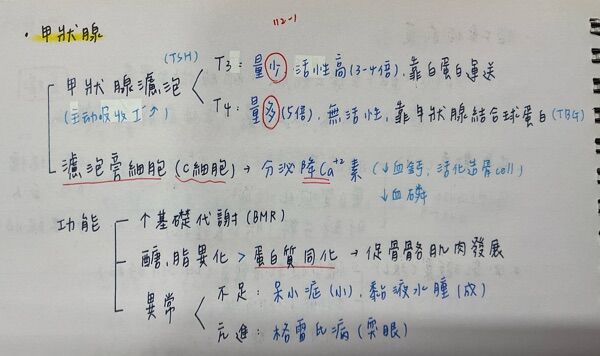 112-1
・甲狀腺
(TSH)
甲狀腺濾泡
(主動吸收I⁻↑)
T3：量少，活性高(3-4倍)，靠白蛋白運送
T4：量多(5倍)，無活性，靠甲狀腺結合球蛋白(TBG)
濾泡旁細胞(C細胞)→分泌降Ca⁺²素(↓血鈣，活化造骨cell)
↓血磷
功能
↑基礎代謝(BMR)
醣、脂異化 > 蛋白質同化 → 促骨骼肌肉發展
異常
不足：呆小症(小)、黏液水腫(成)
亢進：格雷氏病(突眼)